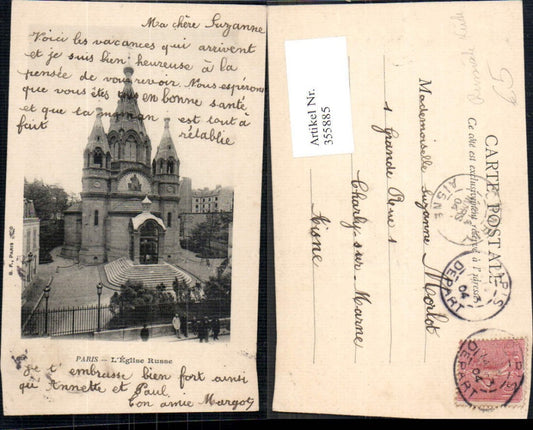 Ma chère Suzanne
Voici les vacances qui arrivent
et je suis bien heureuse à la
pensée de vous revoir. Nous espérons
que vous êtes en bonne santé
et que ta maman est tout à
fait rétablie
B. F., PARIS
PARIS — L'Église Russe
Je t'embrasse bien fort ainsi
qu'Annette et Paul
Ton amie Margot
Artikel Nr.
355885
CARTE POSTALE
Ce côté est exclusivement réservé à l'adresse
Mademoiselle Suzanne Morlot
1 Grande Rue 1
Charly-sur-Marne
Aisne
AISNE
04
DEPART
04
DEPART
04